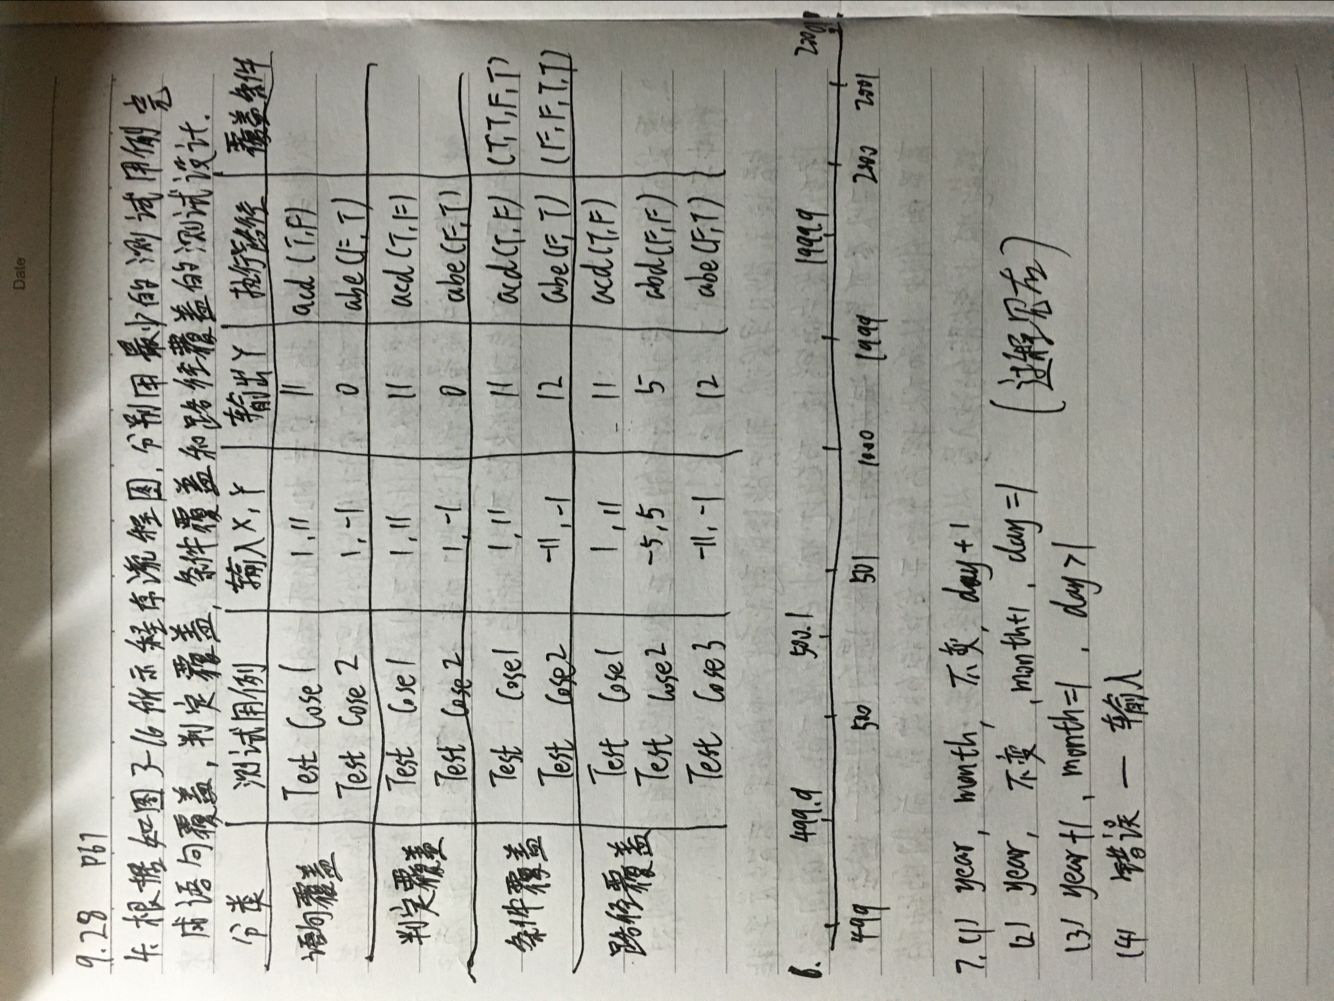 Date
9.28 P61
4. 根据如图3-16所示程序流程图,分别用最少的测试用例完
成语句覆盖,判定覆盖,条件覆盖和路径覆盖的测试设计.
分类 测试用例 输入X,Y 输出Y 执行路径 覆盖条件
语句覆盖 Test Case1 1,11 11 acd(T,F)
Test Case2 1,-1 0 abe(F,T)
判定覆盖 Test Case1 1,11 11 acd(T,F)
Test Case2 1,-1 0 abe(F,T)
条件覆盖 Test Case1 1,11 11 acd(T,F) (T,T,F,T)
Test Case2 -11,-1 12 abe(F,T) (F,F,T,T)
路径覆盖 Test Case1 1,11 11 acd(T,F)
Test Case2 -5,5 5 abd(F,F)
Test Case3 -11,-1 12 abe(F,T)
6. 499.9 500.1 1999.9
499 500 501 1000 1999 2000 2001
7.(1) year, month, 不变, day+1
(2) year, 不变, month+1, day=1
(3) year+1, month=1, day>1 (过程见左)
(4) 错误 — 输入